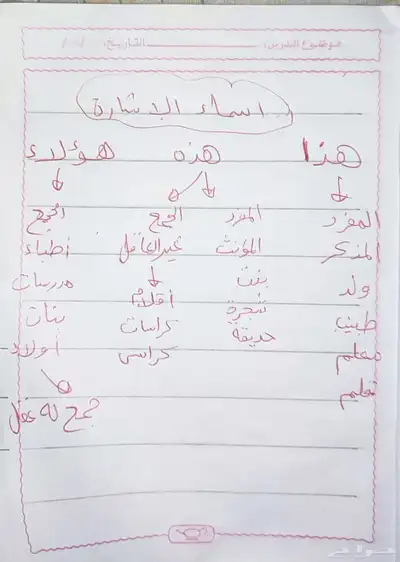 موضوع الدرس: التاريخ: / /
اسماء الإشارة
هذا هذه هؤلاء
المفرد المفرد الجمع الجمع
المذكر المؤنث غير العاقل أطباء
ولد بنت أقلام مدرسات
طبيب شجرة كراسات بنات
معلم حديقة كراسي أولاد
قلم
جمع له عقل
حراج